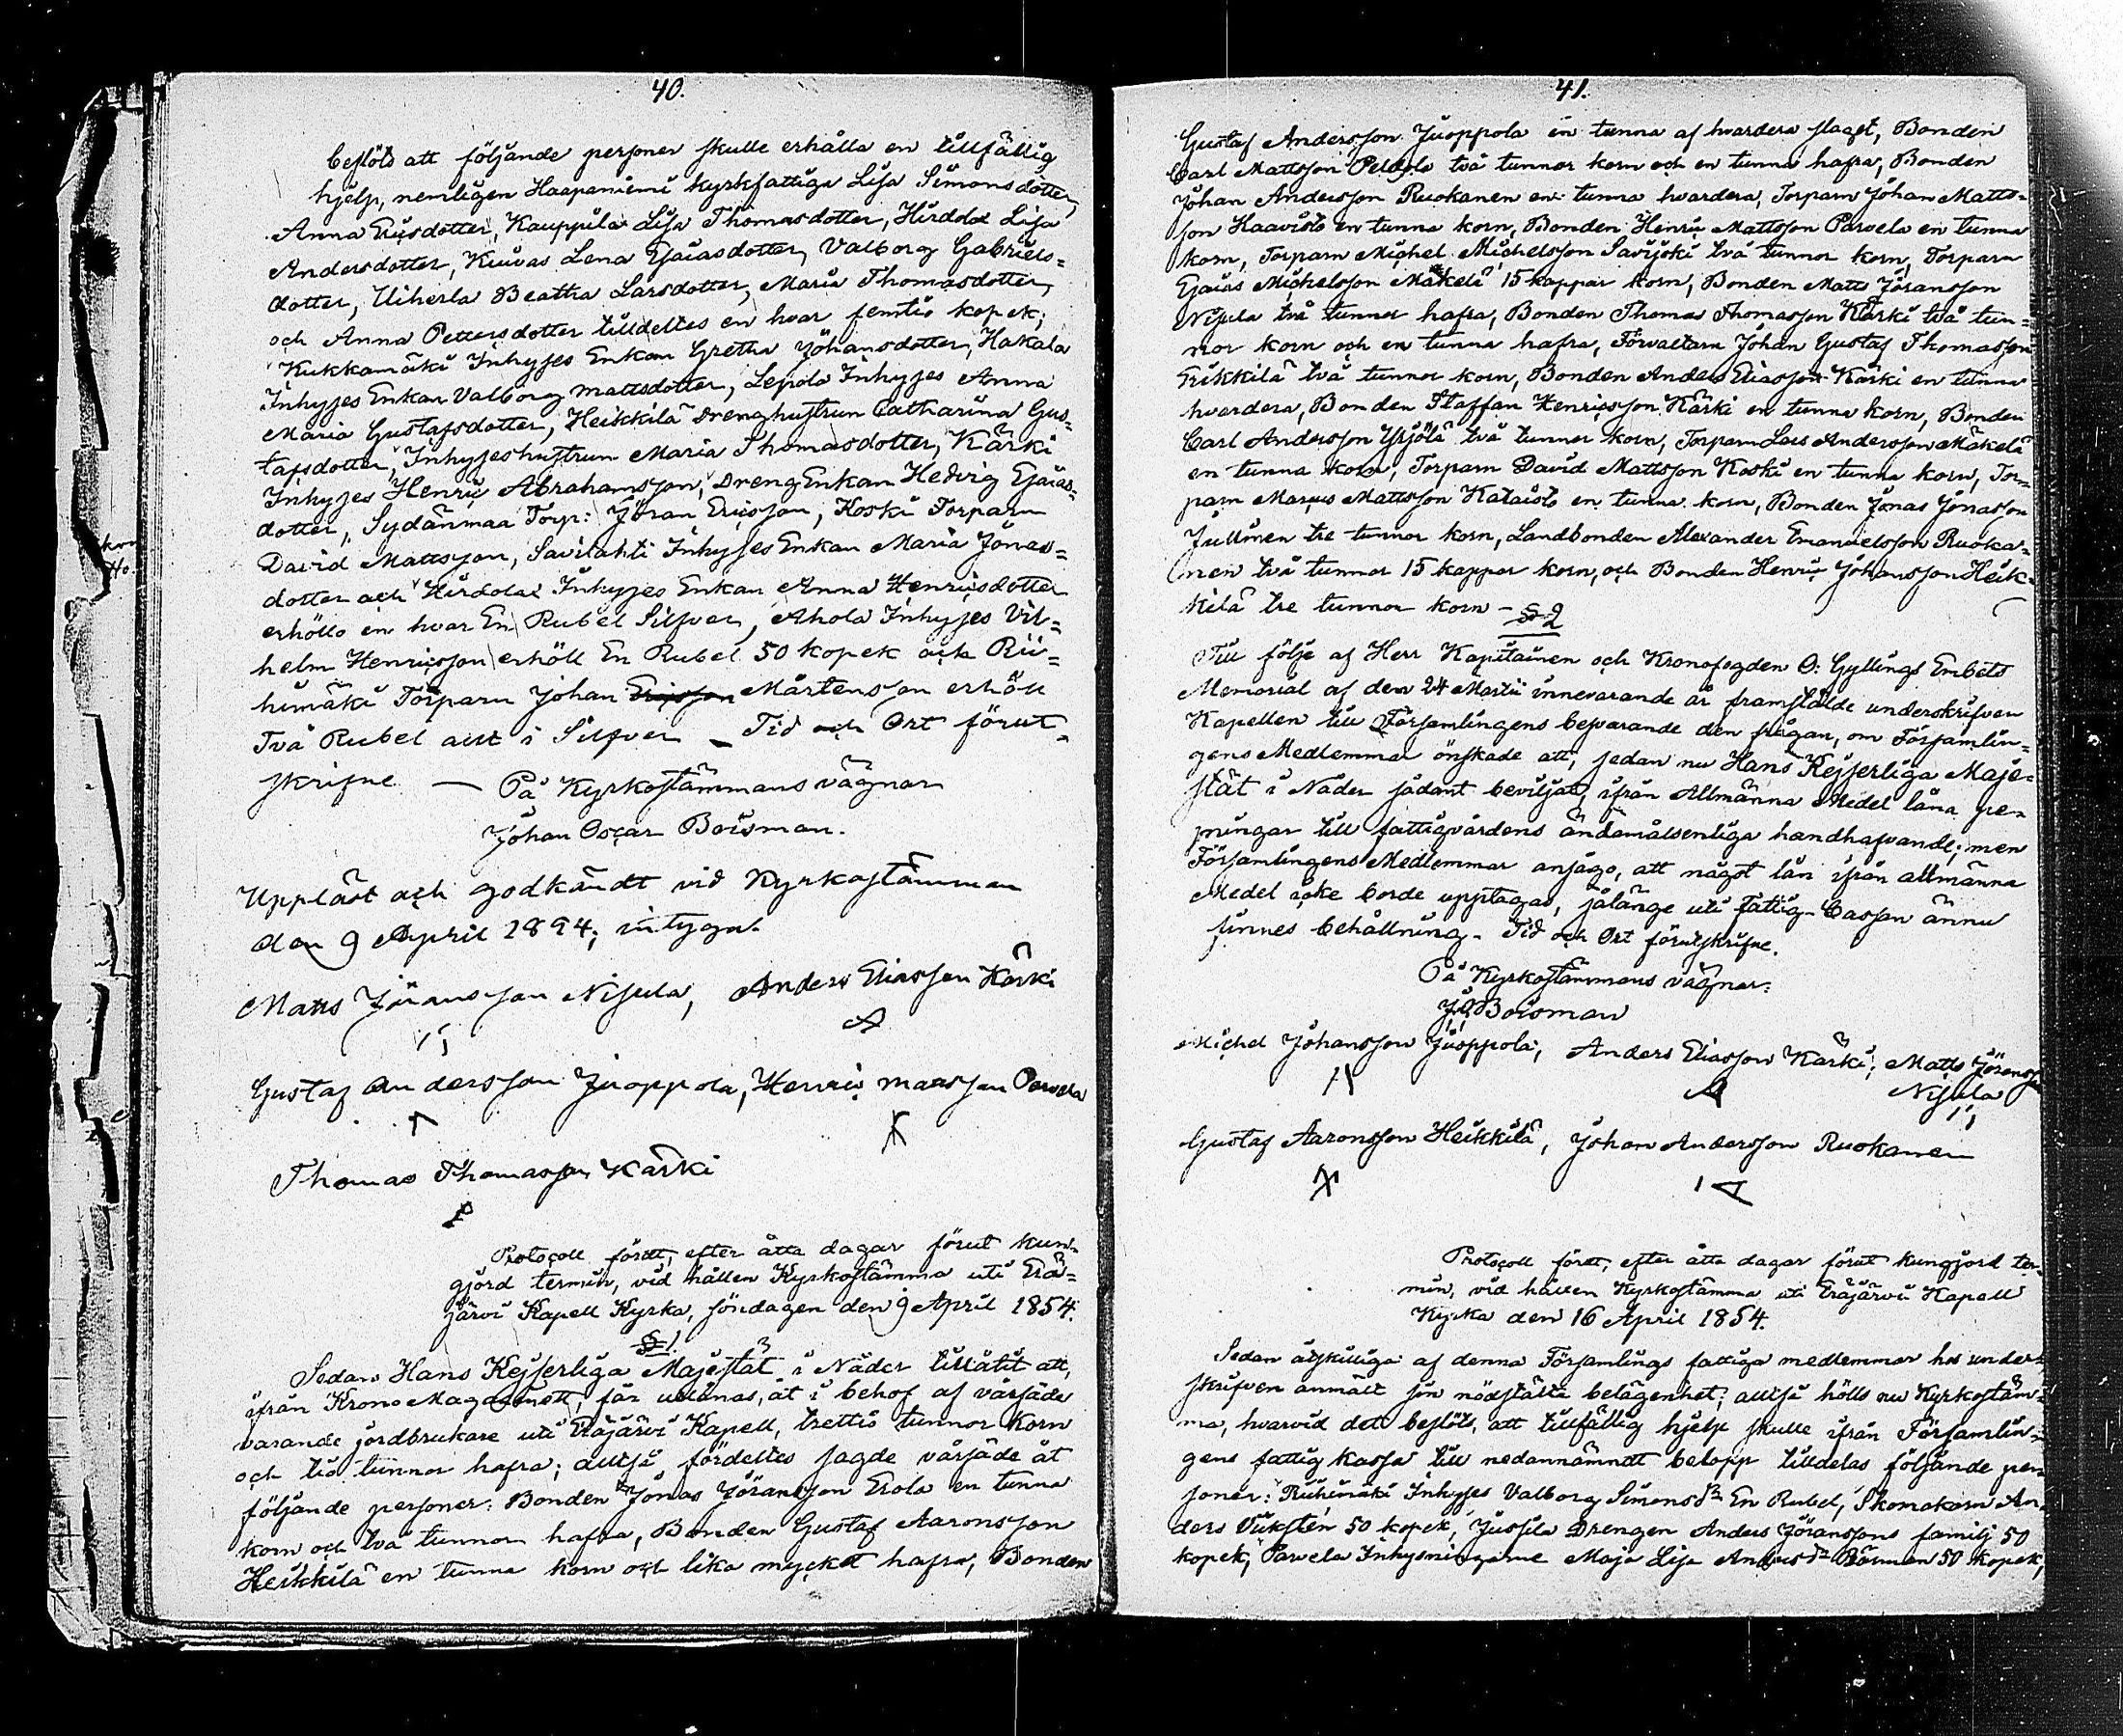 40.
beslöts att följande personer skulle erhålla en tillfällig
hjelp, nemligen Haapaniemi kyrkfattiga Lisa Simonsdotter,
Anna Ericsdotter, Kauppila Lisa Thomasdotter, Hirdola Lisa
Andersdotter, Kuivas Lena Esaiasdotter, Valborg Gabriels=
dotter, Uiherla Beatha Larsdotter, Maria Thomasdotter,
och Anna Pettersdotter tilldeltes en hvar femtio kopek;
Kukkamäki Inhyses Enkan Gretha Johansdotter, Hakala
Inhyses Enkan Valborg Mattsdotter, Lepola Inhyses Anna
Maria Gustafsdotter, Heikkilä Drenghustrun Catharina Gus=
tafsdotter, Inhyseshustrun Maria Thomasdotter, Kärki
Inhyses Henric Abrahamsson, DrengEnkan Hedvig Esaias=
dotter, Sydänmaa Torp: Jöran Ericsson, Koski Torparn
David Mattsson, Savilahti Inhyses Enkan Maria Jonas=
dotter och Hirdola Inhyses Enkan Anna Henricsdotter
erhöllo en hvar En Rubel Silfver, Ahola Inhyses Vil=
helm Henricsson erhöll En Rubel 50 kopek och Rii=
himäki Torparn Johan Ericsson Mårtensson erhöll
Två Rubel allt i Silfver – Tid och Ort förut=
skrifne — På Kyrkostämmans vägnar
Johan Oscar Boisman.
Uppläst och godkändt vid Kyrkostämman
den 9 April 1894; intygar.
Matts Jöransson Nisula, Anders Eliasson Kärki
Gustaf Andersson Juoppola, Henric Matsson Parvela
Thomas Thomasson Kärki
Protocoll fördt, efter åtta dagar förut kun=
gjord termin, vid hållen Kyrkostämma uti Erä=
järvi Kapell Kyrka, söndagen den 9 April 1854.
§ 1.
Sedan Hans Kejserliga Majestät i Nåder tillåtit att,
ifrån Krono Magasinett, får utlånas, åt i behof af vårsäde
varande jordbrukare uti Eräjärvi Kapell, trettio tunnor korn
och tio tunnor hafra; alltså fördeltes sagde vårsäde åt
följande personer: Bonden Jonas Jöransson Erola en tunna
korn och två tunnor hafra, Bonden Gustaf Aaronsson
Heikkilä en tunna korn och lika mycket hafra, Bonden
41.
Gustaf Andersson Juoppola en tunna af hvardera slaget, Bonden
Carl Mattsson Peldola två tunnor korn och en tunna hafra, Bonden
Johan Andersson Ruokanen en tunna hvardera, Torparn Johan Matts=
son Haavisto en tunna korn, Bonden Henric Mattsson Parvela en tunna
korn, Torparn Michel Michelsson Savijoki två tunnor korn, Torparn
Esaias Michelsson Mäkelä 15 kappar korn, Bonden Matts Jöransson
Nisula två tunnor hafra, Bonden Thomas Thomasson Kärki två tun=
nor korn och en tunna hafra, Förvaltarn Johan Gustaf Thomasson
Erikkilä två tunnor korn, Bonden Anders Eliasson Kärki en tunna
hvardera, Bonden Staffan Henricsson Kärki en tunna korn, Bonden
Carl Andersson Yrjölä två tunnor korn, Torparn Lars Andersson Mäkelä
en tunna korn, Torparn David Mattsson Koski en tunna korn, Tor=
parn Marcus Mattsson Kataisto en tunna korn, Bonden Jonas Jonasson
Jullinen tre tunnor korn, Landbonden Alexander Emanuelsson Ruoka=
nen två tunnor 15 kappar korn, och Bonden Henric Johansson Heik=
kilä tre tunnor korn –
§ 2
Till följe af Herr Kapitainen och Kronofogden O: Gyllings Embets
Memorial af den 24 Martii innevarande år framstälde underskrifven
Kapellan till Församlingens besvarande den frågan, om Församlin=
gens Medlemmar önskade att, sedan nu Hans Kejserliga Maje=
stät i Nåder sådant beviljat, ifrån Allmänna Medel låna pe=
ningar till fattigvårdens ändamålsenliga handhafvande; men
Församlingens Medlemmar ansågo, att något lån ifrån allmänna
Medel icke borde upptagas, sålänge uti fattig-Cassan ännu
finnes behållning. Tid och Ort förutskrifne.
På Kyrkostämmans vägnar:
J.O. Boisman
Michel Johansson Juoppola, Anders Eliasson Kärki; Matts Jöransson
Nisula
Gustaf Aaronsson Heikkilä, Johan Andersson Ruokanen
Protocoll fördt, efter åtta dagar förut kungjord ter=
min, vid hållen Kyrkostämma uti Eräjärvi Kapell
Kyrka den 16 April 1854.
Sedan åtskilliga af denna Församlings fattiga medlemmar hos under=
skrifven anmält sin nödstälta belägenhet; alltså hölls nu Kyrkostäm=
ma, hvarvid det beslöts, att tillfällig hjelp skulle ifrån Församlin=
gens fattig kassa till nedannämndt belopp tilldelas följande per=
soner: Riihimäki Inhyses Valborg Simonsdr En Rubel, Skomakarn An=
ders Vikstén 50 kopek, Jussila Drengen Anders Jöranssons familj 50
kopek, Parvela Maja Lisa Andersdr 50 kopek,